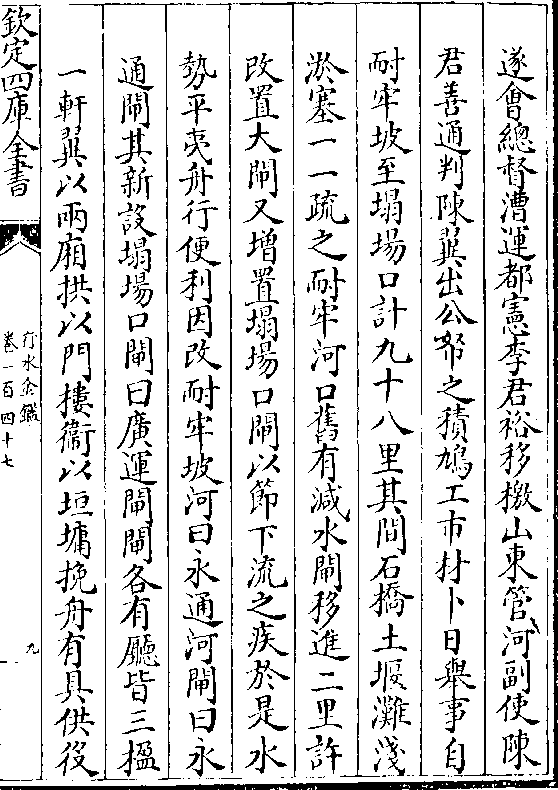 遂會總督漕運都憲李君裕移檄山東管河副使陳
君善通判陳翼出公帑之積鳩工市材卜日舉事自
耐牢坡至塌場口計九十八里其間石橋土堰灘淺
淤塞一一疏之耐牢河口舊有減水閘移進二里許
改置大閘又增置塌場口閘以節下流之疾於是水
勢平夷舟行便利因改耐牢坡河曰永通河閘曰永
通閘其新設塌場口閘曰廣運閘閘各有廳皆三楹
一軒翼以兩廂拱以門樓衞以垣墉挽舟有具供役
欽定四庫全書
行水金鑑
卷一百四十七
九